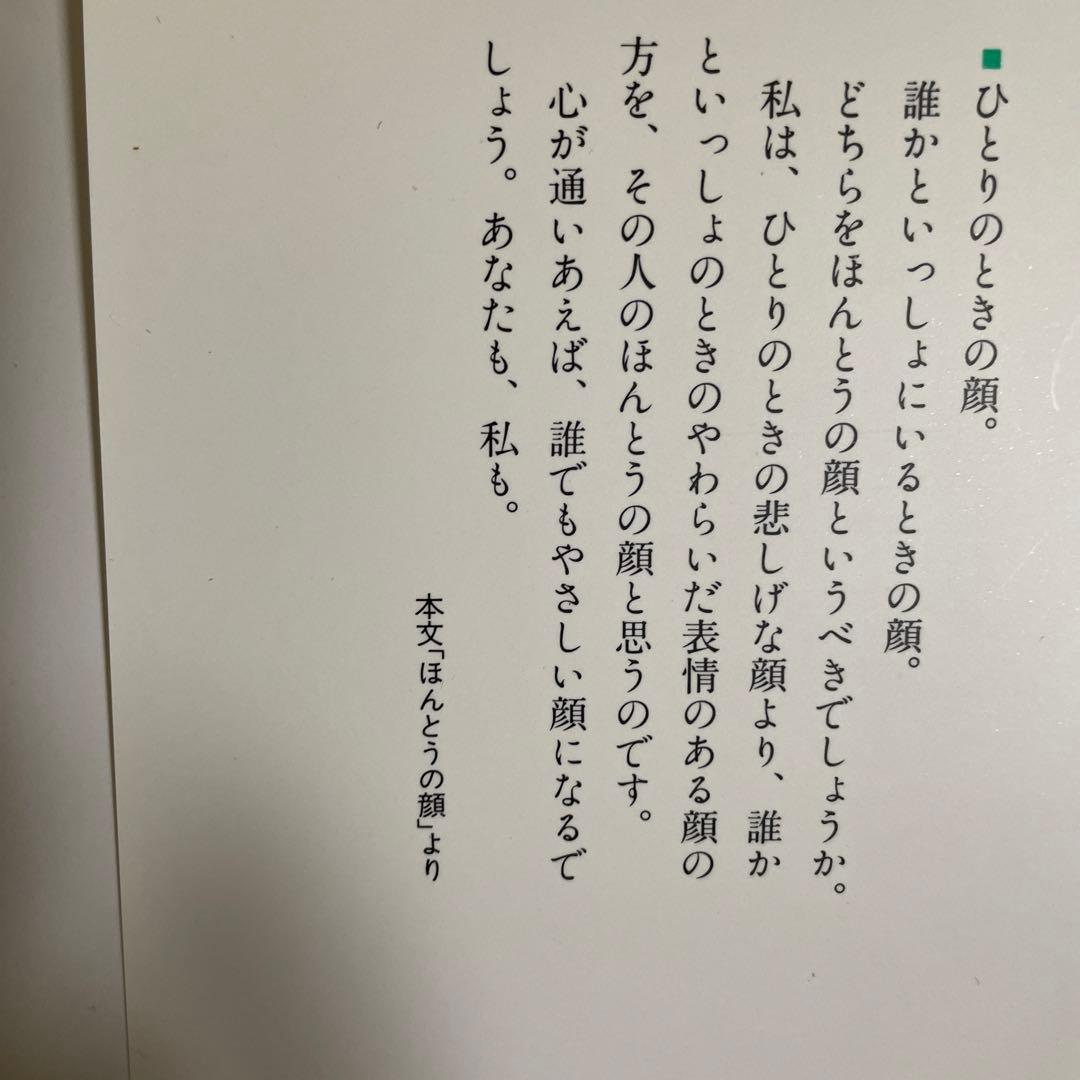 ■ひとりのときの顔。
誰かといっしょにいるときの顔。
どちらをほんとうの顔というべきでしょうか。
私は、ひとりのときの悲しげな顔より、誰か
といっしょのときのやわらいだ表情のある顔の
方を、その人のほんとうの顔と思うのです。
心が通いあえば、誰でもやさしい顔になるで
しょう。あなたも、私も。
本文「ほんとうの顔」より